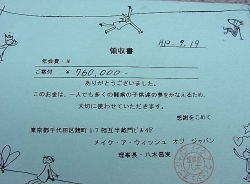 領収書
H12.9.19
年会費 ¥
ご寄付 ¥760,000-
ありがとうございました。
このお金は、一人でも多くの難病の子供達の夢をかなえるため、
大切に使わせていただきます。
感謝をこめて
東京都千代田区麹町1-7相互半蔵門ビル4F
メイク・ア・ウィッシュ オブ ジャパン
理事長・八木昌実